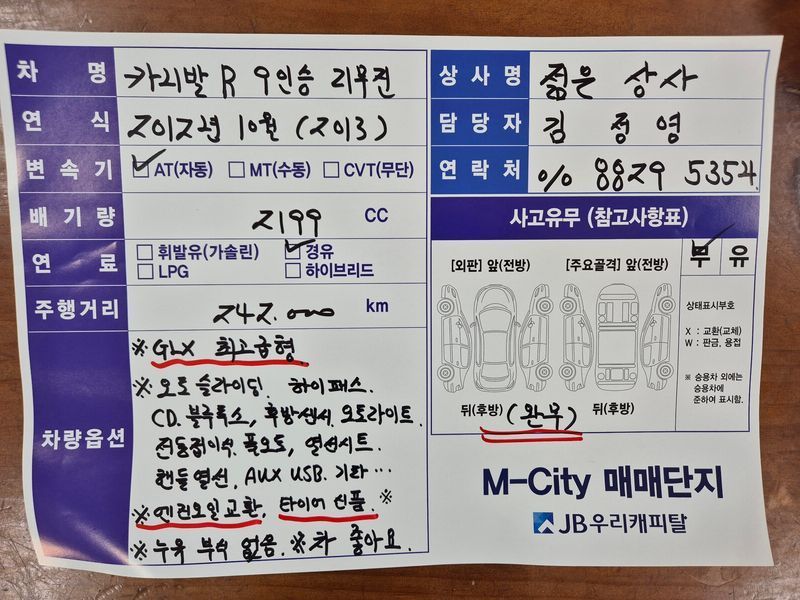 차 명 카니발 R 9인승 리무진
연 식 2012년 10월 (2013)
변 속 기 AT(자동) MT(수동) CVT(무단)
배 기 량 2199 CC
연 료 휘발유(가솔린) 경유
LPG 하이브리드
주행거리 242.000 km
차량옵션
※ GLX 최고급형
※ 오토슬라이딩. 하이패스.
CD. 블루투스, 후방센서, 오토라이트.
전동접이식. 풀오토, 열선시트.
핸들열선, AUX USB. 기타 ...
※ 엔진오일교환, 타이어 신품. ※
※ 누유 부식 없음. ※ 차 좋아요.
상 사 명 젊은 상사
담 당 자 김 정 영
연 락 처 010 8829 5354.
사고유무 (참고사항표)
[외판] 앞(전방) [주요골격] 앞(전방)
무 유
상태표시부호
X : 교환(교체)
W : 판금, 용접
※ 승용차 외에는
승용차에
준하여 표시함.
뒤(후방) (완무) 뒤(후방)
M-City 매매단지
JB우리캐피탈